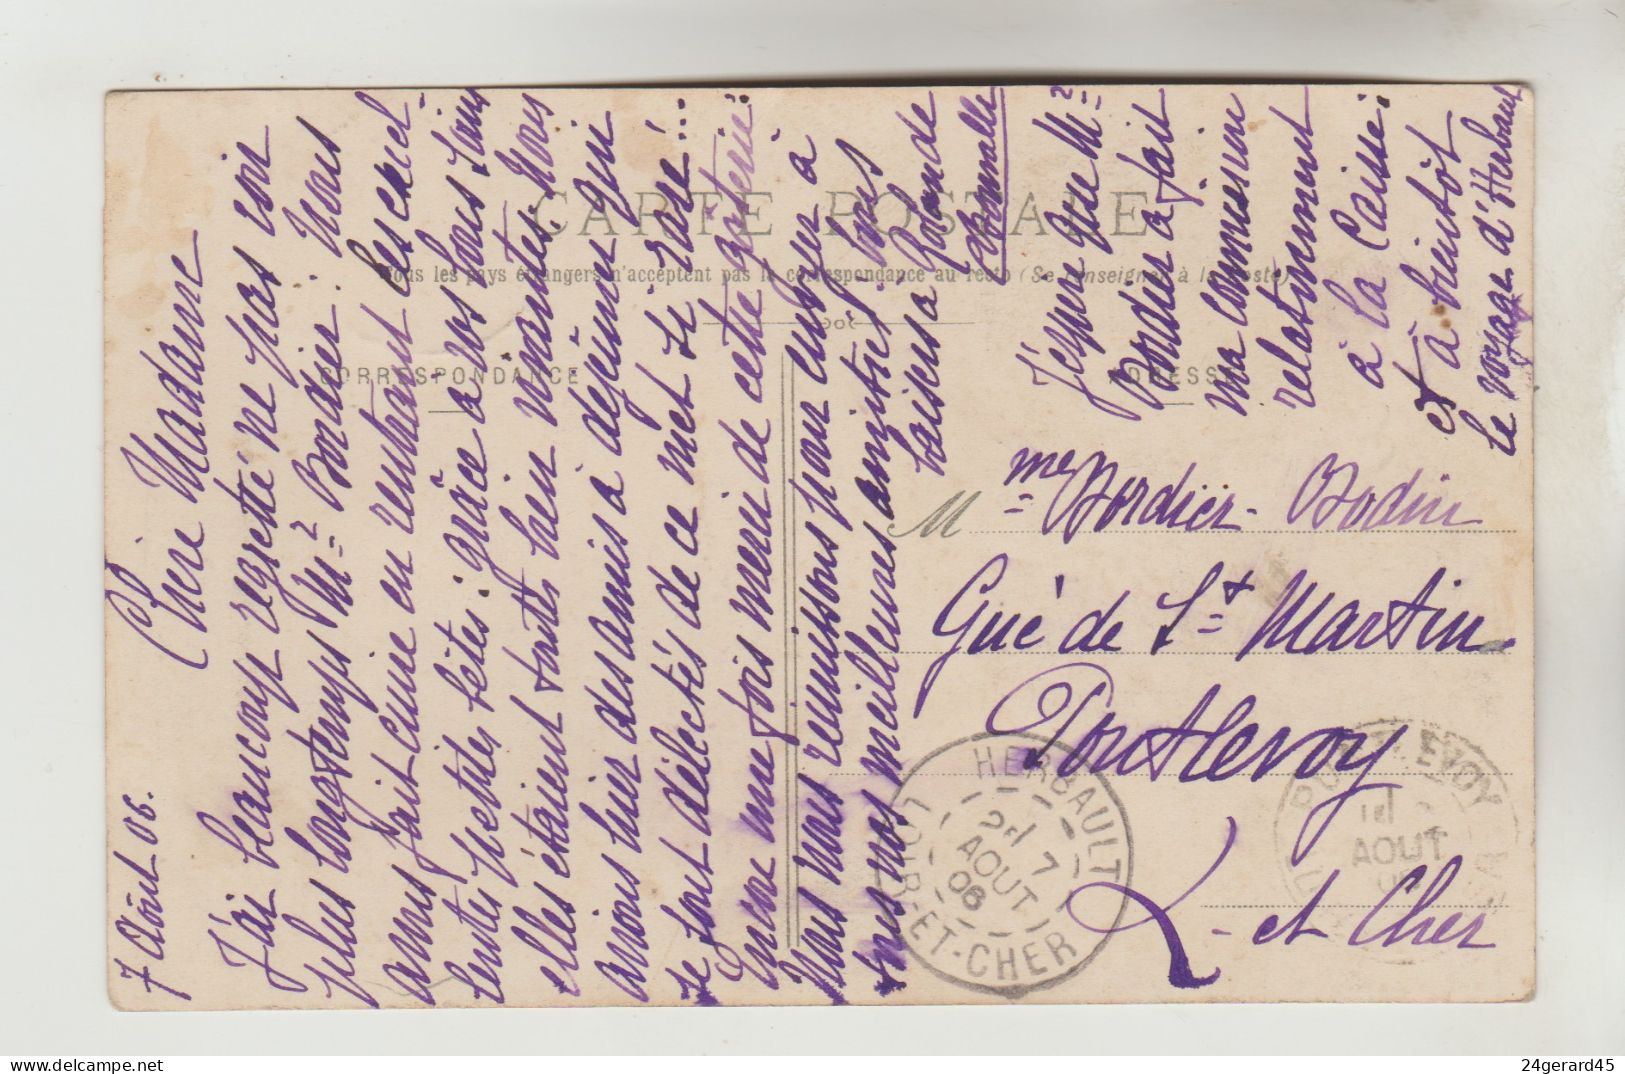 7 Août 06.
Chère Madame
J'ai beaucoup regretté ne pas voir
plus longtemps Mr Bordier. Nous
avons fait cuire en rentrant les excel-
lentes petites bêtes. grâce à vos bons soins
elles étaient toutes bien vivantes. Nous
avions hier des amis à déjeuner qui
se sont délectés de ce met si rare...
Encore une fois merci de cette gâterie.
Nous nous réunissons pour envoyer à
tous nos meilleures amitiés, bons
baisers à
J'espère que Mr
Bordier a fait
ma commission
relativement
à la Caisse.
et à bientôt
le voyage d'Herbault
CARTE POSTALE
Tous les pays étrangers n'acceptent pas la correspondance au recto (Se renseigner à la Poste)
CORRESPONDANCE
ADRESSE
M me Bordier-Bodin
Gué de St Martin
Pontlevoy
L-et Cher
HERBAULT
7
AOUT
06
LOIR-ET-CHER
PONTLEVOY
AOUT
24gerard45